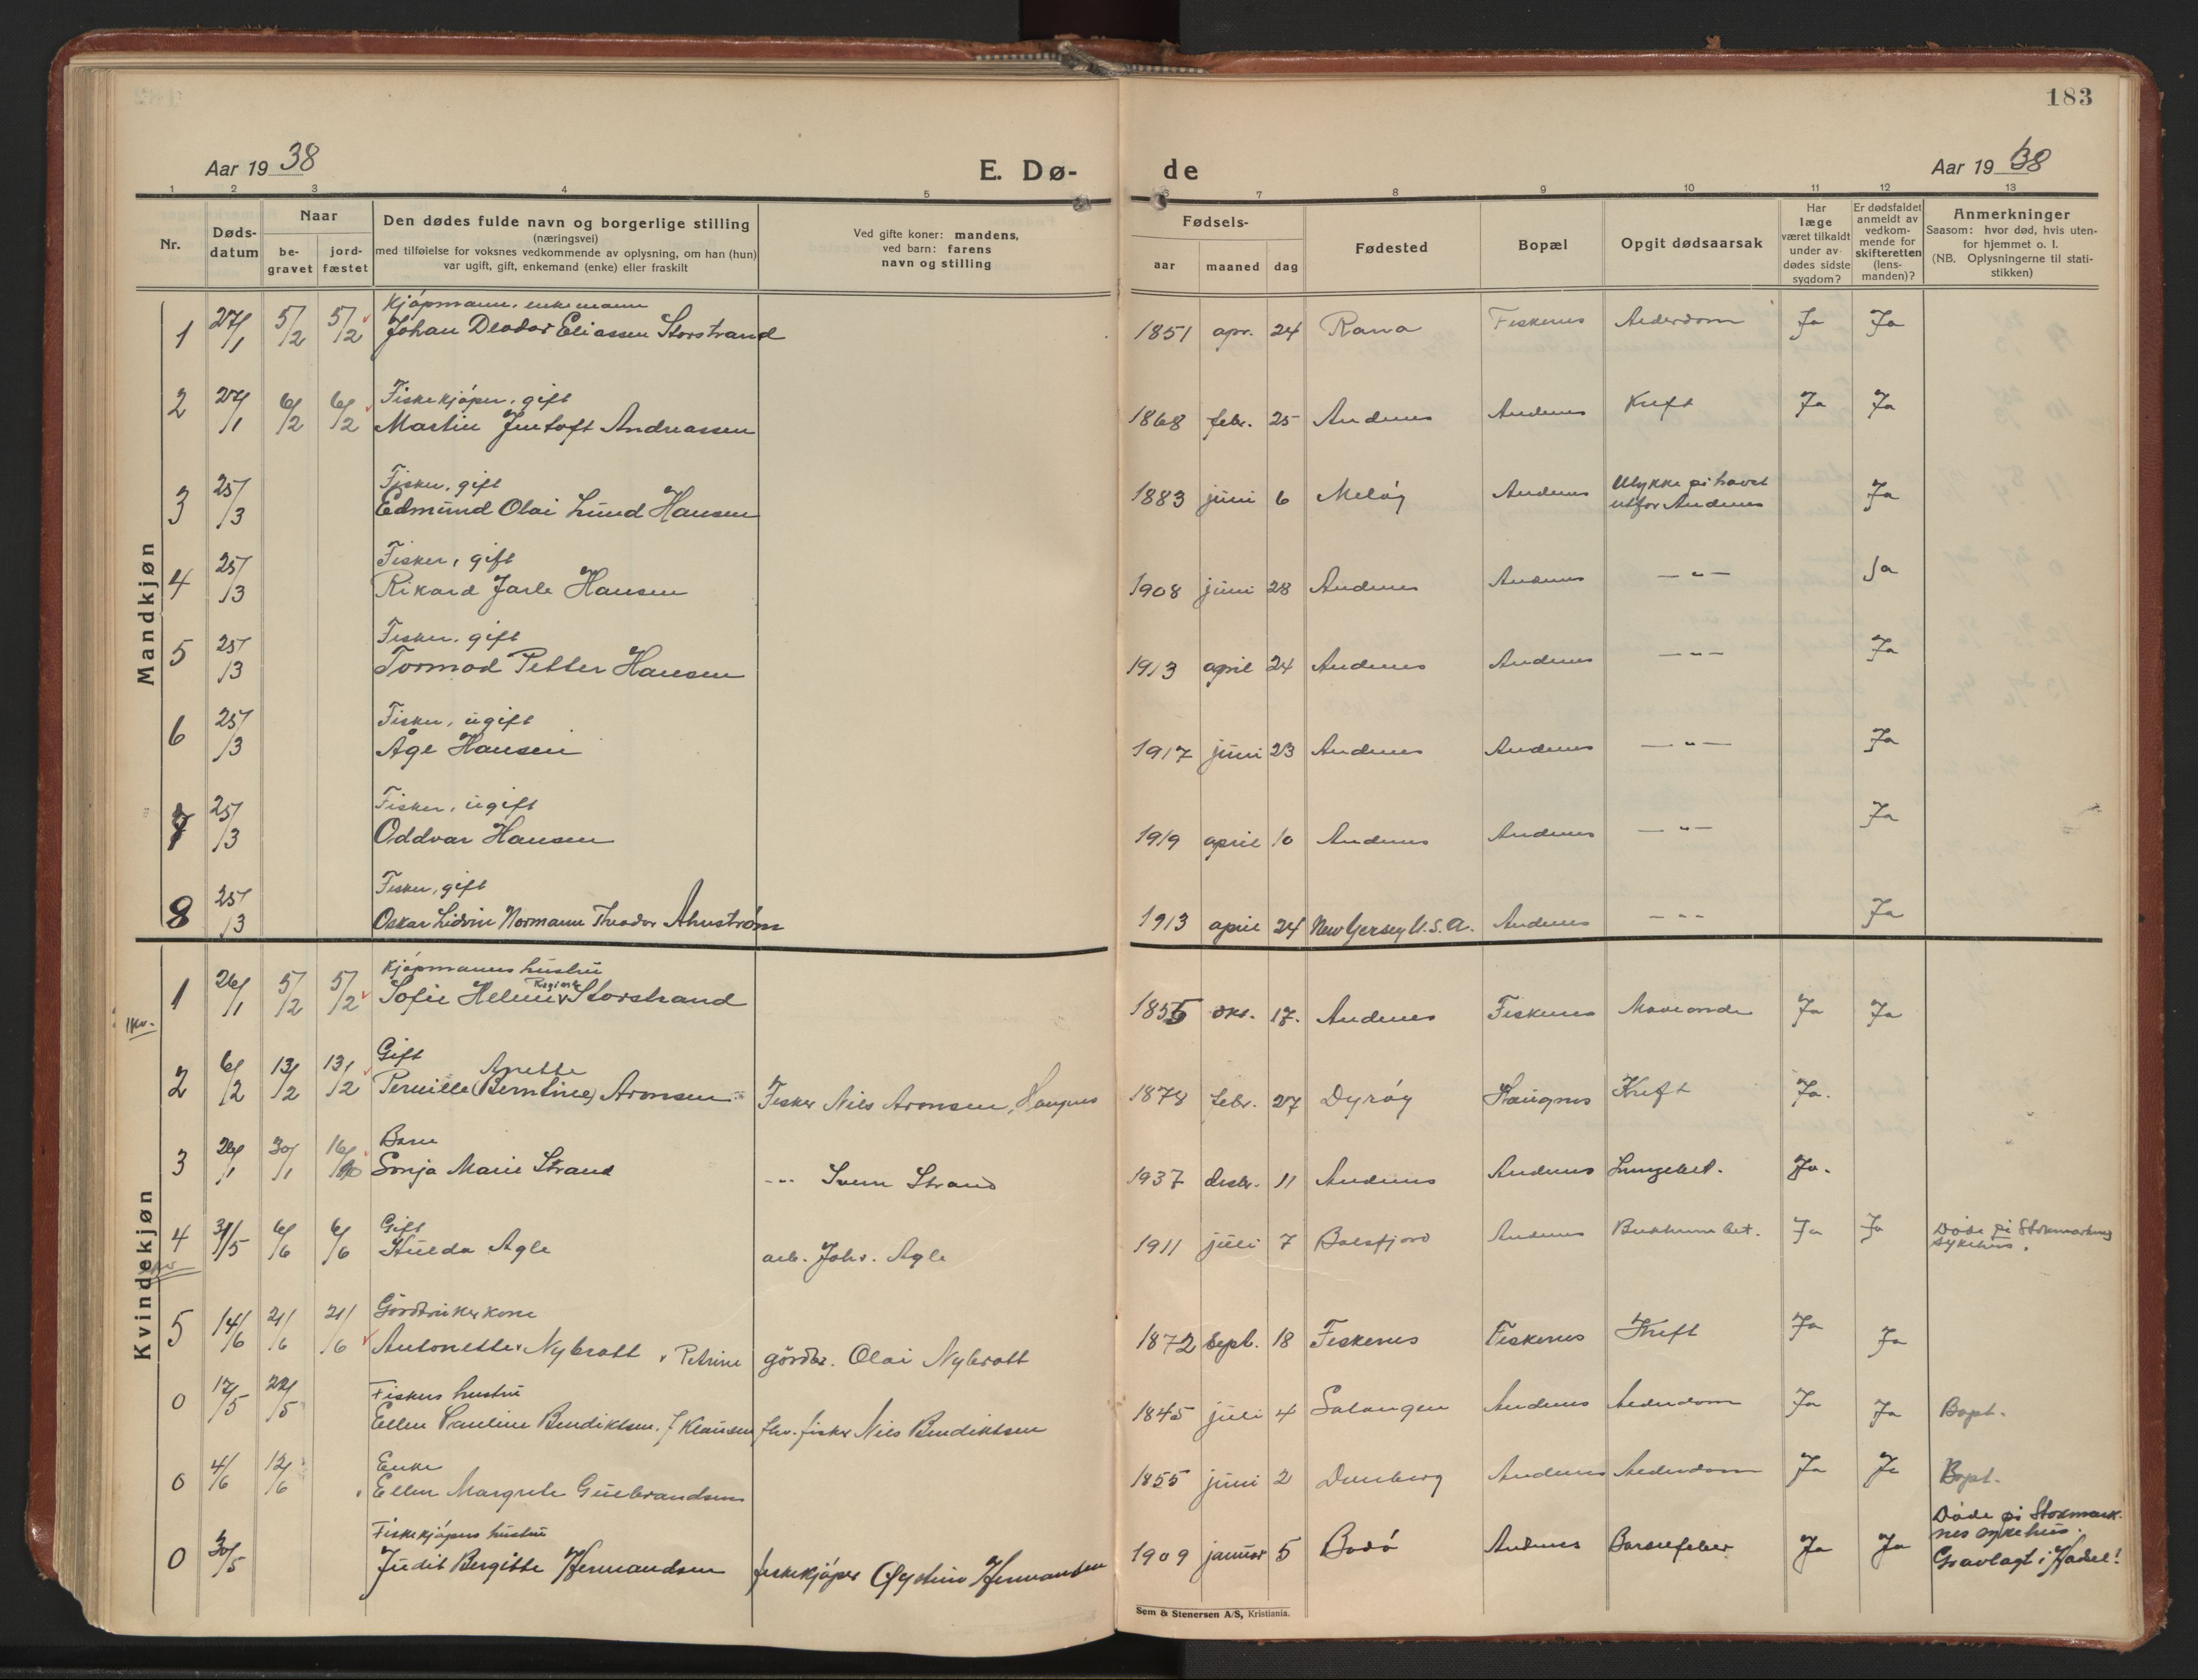 183
Aar 19 38
E. Dø-
de
Aar 19 38
1 2 3 4 5
6 7 8 9 10 11 12 13
Nr.
Døds-
datum
Naar
be-
gravet
jord-
fæstet
Den dødes fulde navn og borgerlige stilling
(næringsvei)
med tilføielse for voksnes vedkommende av oplysning, om han (hun)
var ugift, gift, enkemand (enke) eller fraskilt
Ved gifte koner: mandens,
ved barn: farens
navn og stilling
Fødsels-
aar maaned dag
Fødested
Bopæl
Opgit dødsaarsak
Har
læge
været tilkaldt
under av-
dødes sidste
sygdom?
Er dødsfaldet
anmeldt av
vedkom-
mende for
skifteretten
(lens-
manden)?
Anmerkninger
Saasom: hvor død, hvis uten-
for hjemmet o. l.
(NB. Oplysningerne til stati-
stikken)
Mandkjøn
Kjøpmann, enkemann
1 27/1 5/2 5/2 Johan Deodor Eliassen Storstrand 1851 apr. 24 Rana Fiskenes Alderdom Ja Ja
Fiskekjøper, gift
2 27/1 6/2 6/2 Martin Jentoft Andreassen 1868 febr. 25 Andenes Andenes Kreft Ja Ja
Fisker, gift
3 25/3 Edmund Olai Lund Hansen 1883 juni 6 Meløy Andenes Ulykke på havet
utfor Andenes Ja
Fisker, gift
4 25/3 Rikard Jarle Hansen 1908 juni 28 Andenes Andenes — " — Ja
Fisker, gift
5 25/3 Tormod Petter Hansen 1913 april 24 Andenes Andenes — " — Ja
Fisker, ugift
6 25/3 Åge Hansen 1917 juni 23 Andenes Andenes — " — Ja
Fisker, ugift
7 25/3 Oddvar Hansen 1919 april 10 Andenes Andenes — " — Ja
Fisker, gift
8 25/3 Oskar Lidvin Normann Theodor Ahnstrøm 1913 april 24 New Yersey U.S.A. Andenes — " — Ja
Kvindekjøn
Kjøpmanns hustru
1 26/1 5/2 5/2 Sofie Heline Regine Storstrand 1855 okt. 17. Andenes Fiskenes Maveonde Ja Ja
Gift
Anette
2 6/2 13/2 13/2 Pernille (Berntine) Aronsen Fisker Nils Aronsen, Haugnes 1878 febr. 27 Dyrøy Haugnes Kreft Ja.
Barn
3 26/1 30/1 16/10 Sonja Marie Strand -"- Svenn Strand 1937 desbr. 11 Andenes Andenes Lungebet. Ja.
Gift
4 31/5 6/6 6/6 Hulda Agle arb. Johs. Agle 1911 juli 7 Balsfjord Andenes Bukhinnebet. Ja Ja Døde på Stokmarknes
sykehus.
Gårdbrukerkone
5 14/6 21/6 21/6 Antonette Nybrott Petrine gårdbr. Olai Nybrott 1872 sept. 18 Fiskenes Fiskenes Kreft Ja Ja
Fiskers hustru
0 17/5 22/5 Ellen Pauline Bendiktsen, f Klausen fhv. fisker Nils Bendiktsen 1845 juli 4 Salangen Andenes Alderdom Ja Ja Bapt.
Enke
0 4/6 12/6 Ellen Margrete Gulbrandsen 1855 juni 2 Dverberg Andenes Alderdom Ja Ja Bapt.
Fiskekjøpers hustru
0 30/5 Judit Bergitte Hermandsen fiskekjøper Øystein Hermandsen 1909 januar 5 Bodø Andenes Barselfeber Ja Ja Døde på Stokmark-
nes sykehus.
Gravlagt i Hadsel!
Sem & Stenersen A/S, Kristiania.